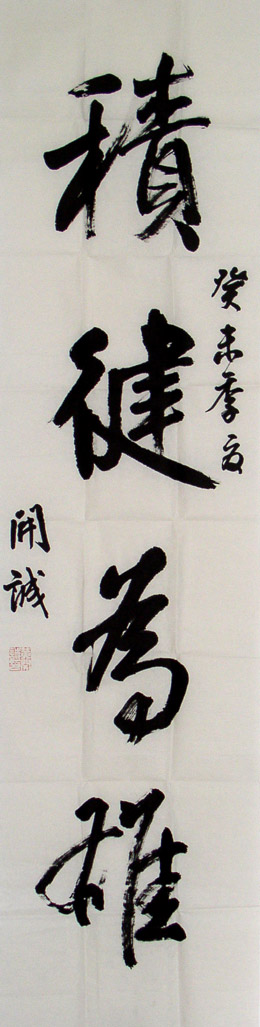 積健為雄
癸未季夏
開誠